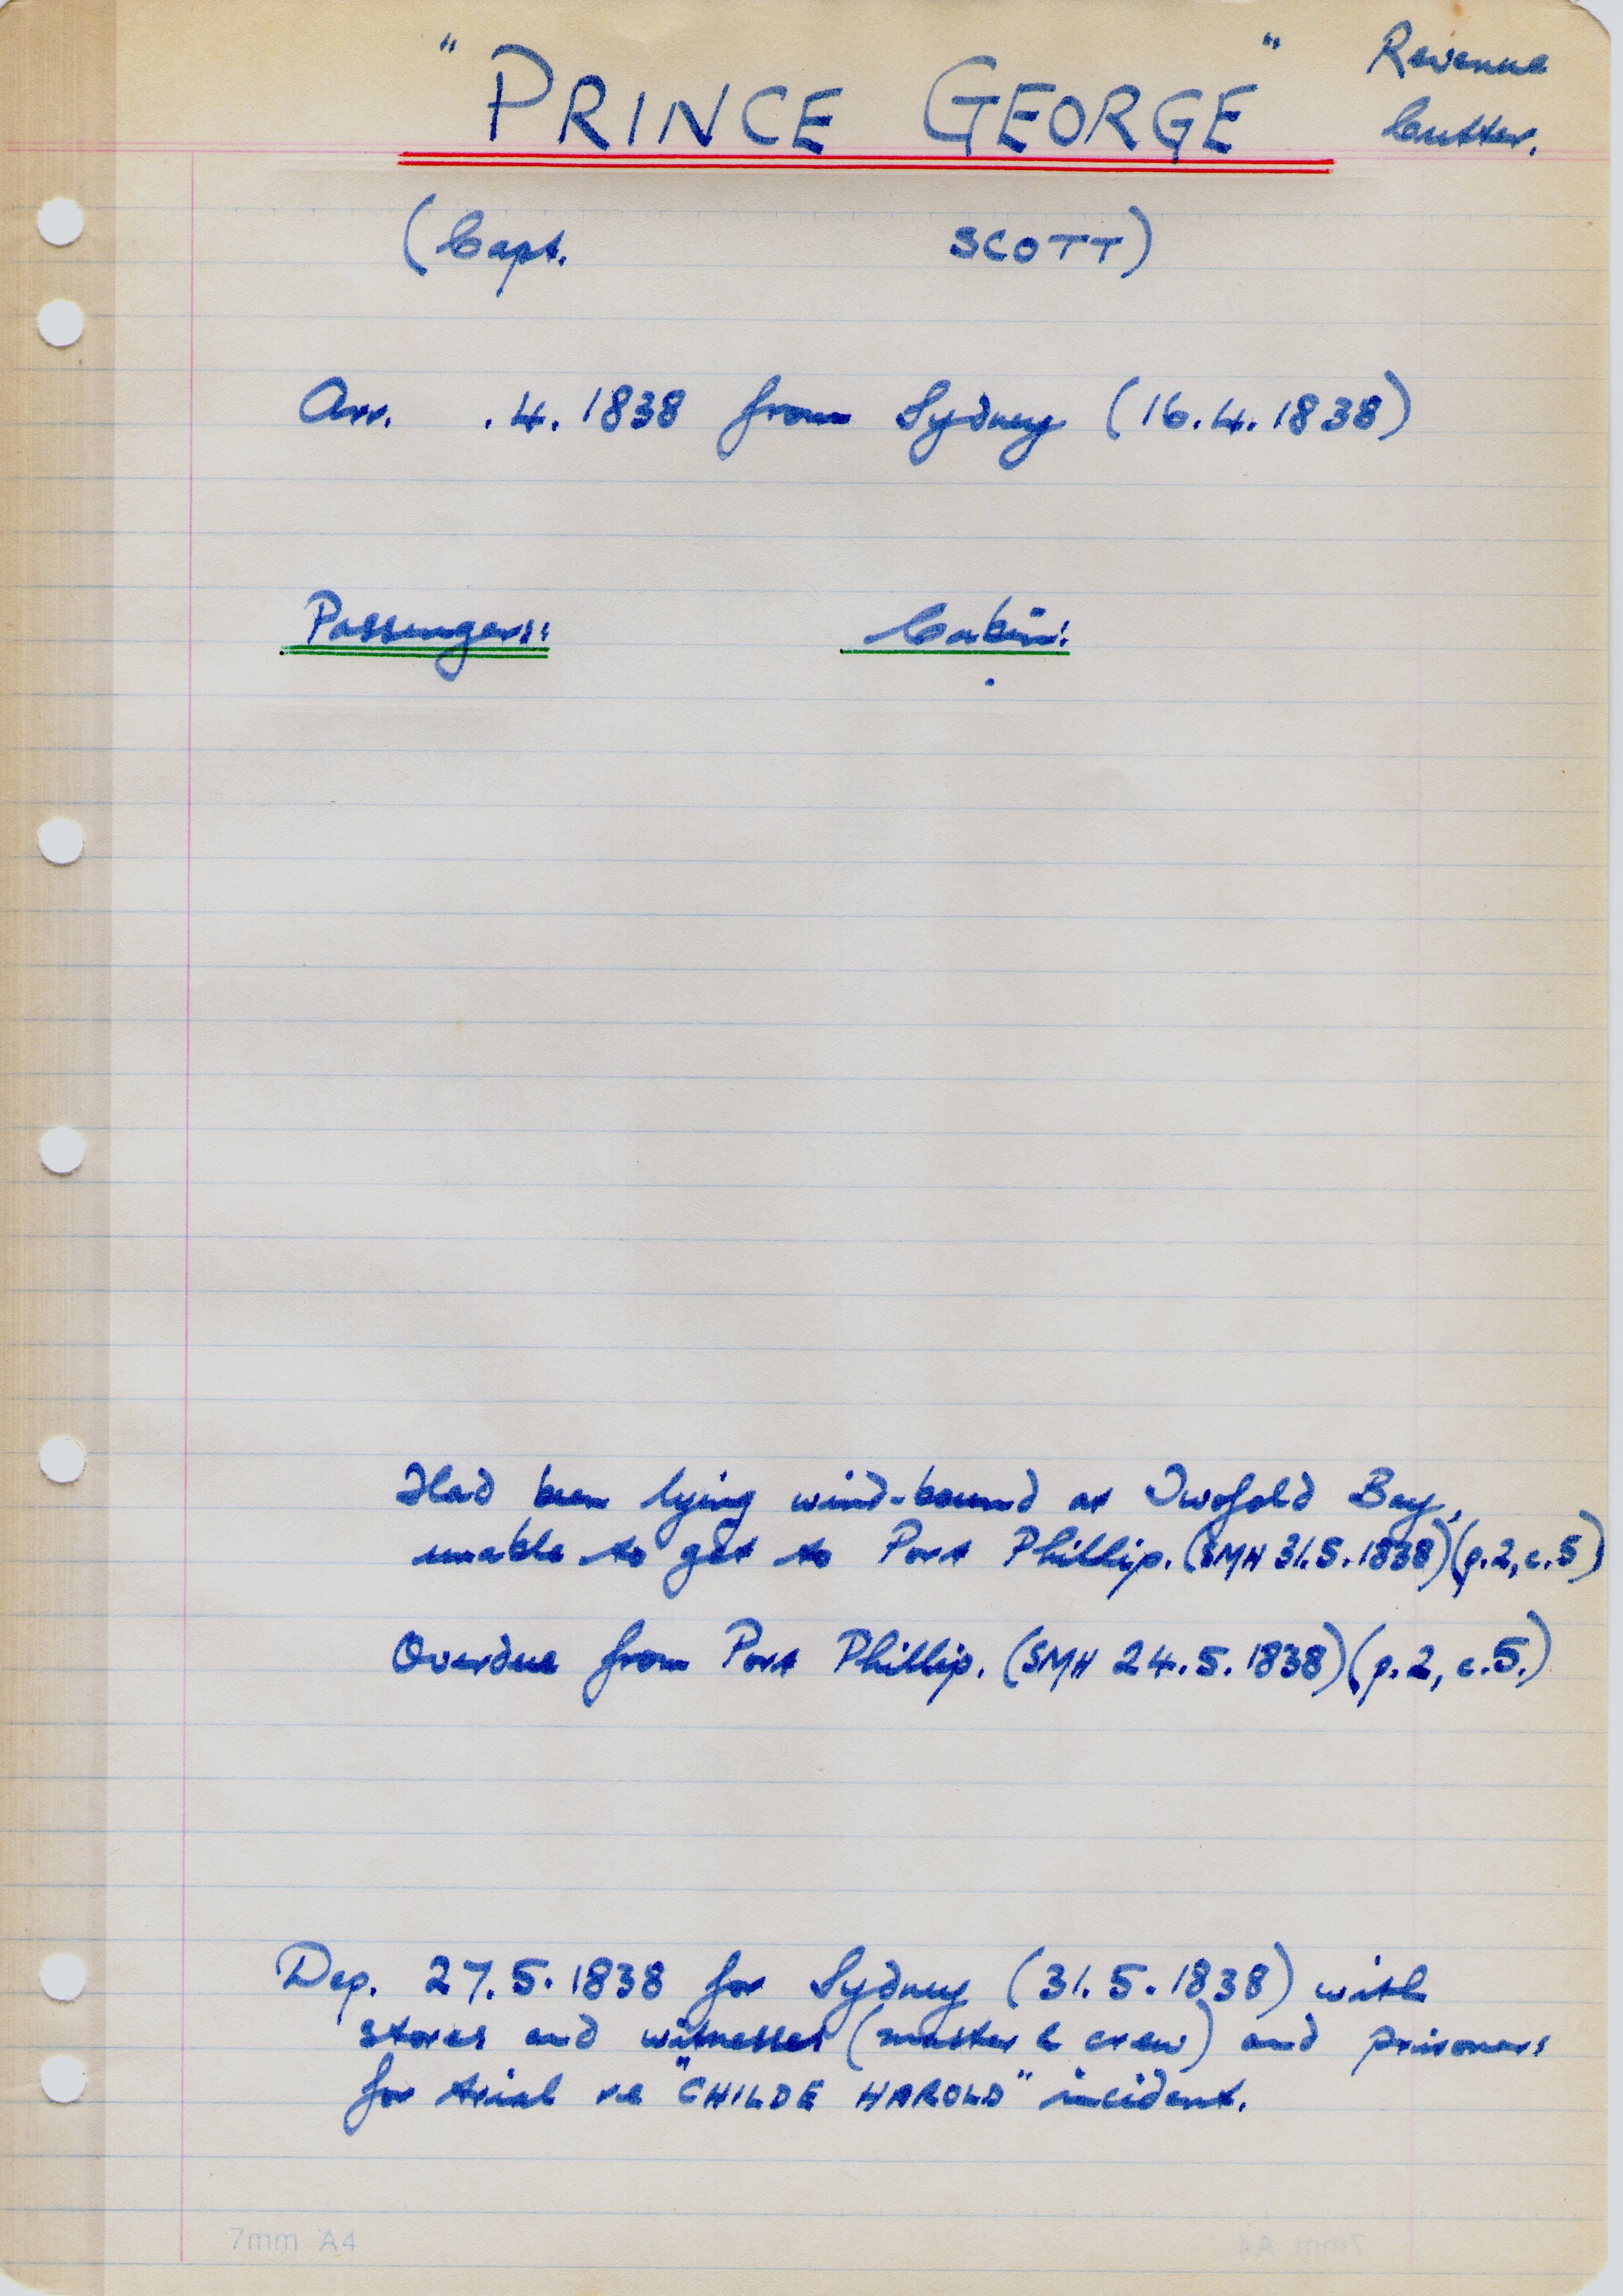 "PRINCE GEORGE" Revenue
Cutter.
(Capt. SCOTT)
Arr. .4.1838 from Sydney (16.4.1838)
Passengers: Cabin:
Had been lying wind-bound at Twofold Bay,
unable to get to Port Phillip. (SMH 31.5.1838)(p.2,c.5)
Overdue from Port Phillip. (SMH 24.5.1838)(p.2, c.5.)
Dep. 27.5.1838 for Sydney (31.5.1838) with
stores and witnesses (master & crew) and prisoners
for trial re "CHILDE HAROLD" incident.
7mm A4